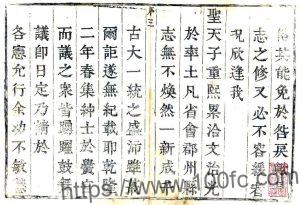 俗其能免於咎戾
志之修又必不容緩
況欣逢我
聖天子重熙累洽文治光
於率土凡省會郡州縣
志無不煥然一新成
古大一統之盛沛雖
爾詎遂無紀載耶乾隆
二年春集紳士於黌宮
而議之衆皆踴躍鼓舞
議即日定乃請於
各憲允行余勿不敏
序三
https://www.100fc.com